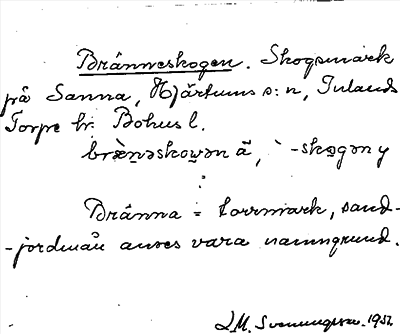 Bränneskogen. Skogsmark
på Sanna, Hjärtums s:n, Inlands
Torpe hr. Bohus l.
bræ̀n̥əskow̥ən ä, `-skogən y
:
Bränna = torrmark, sand-
-jordmån anses vara namngrund.
L.M. Svenungsson 1951.